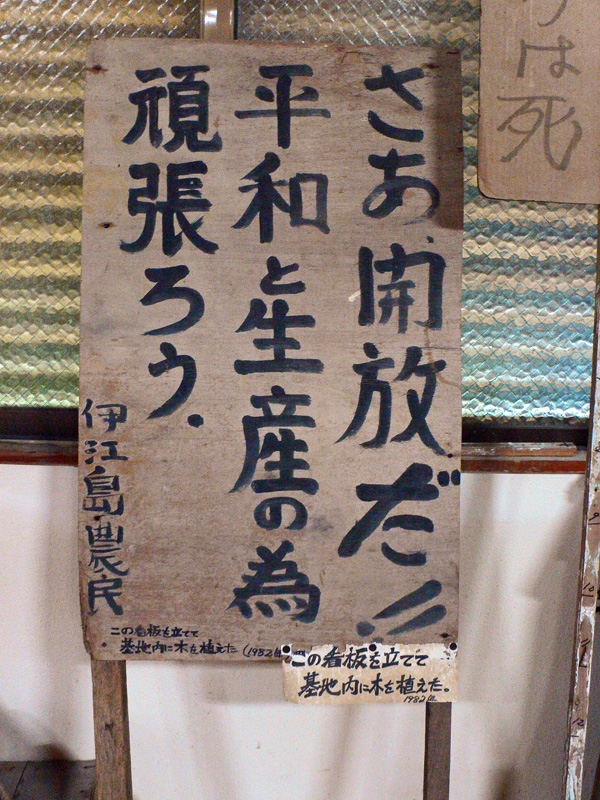 さあ開放だ!!
平和と生産の為
頑張ろう.
伊江島農民
この看板を立てて
基地内に木を植えた(1982年
この看板を立てて
基地内に木を植えた。
1982年
は死